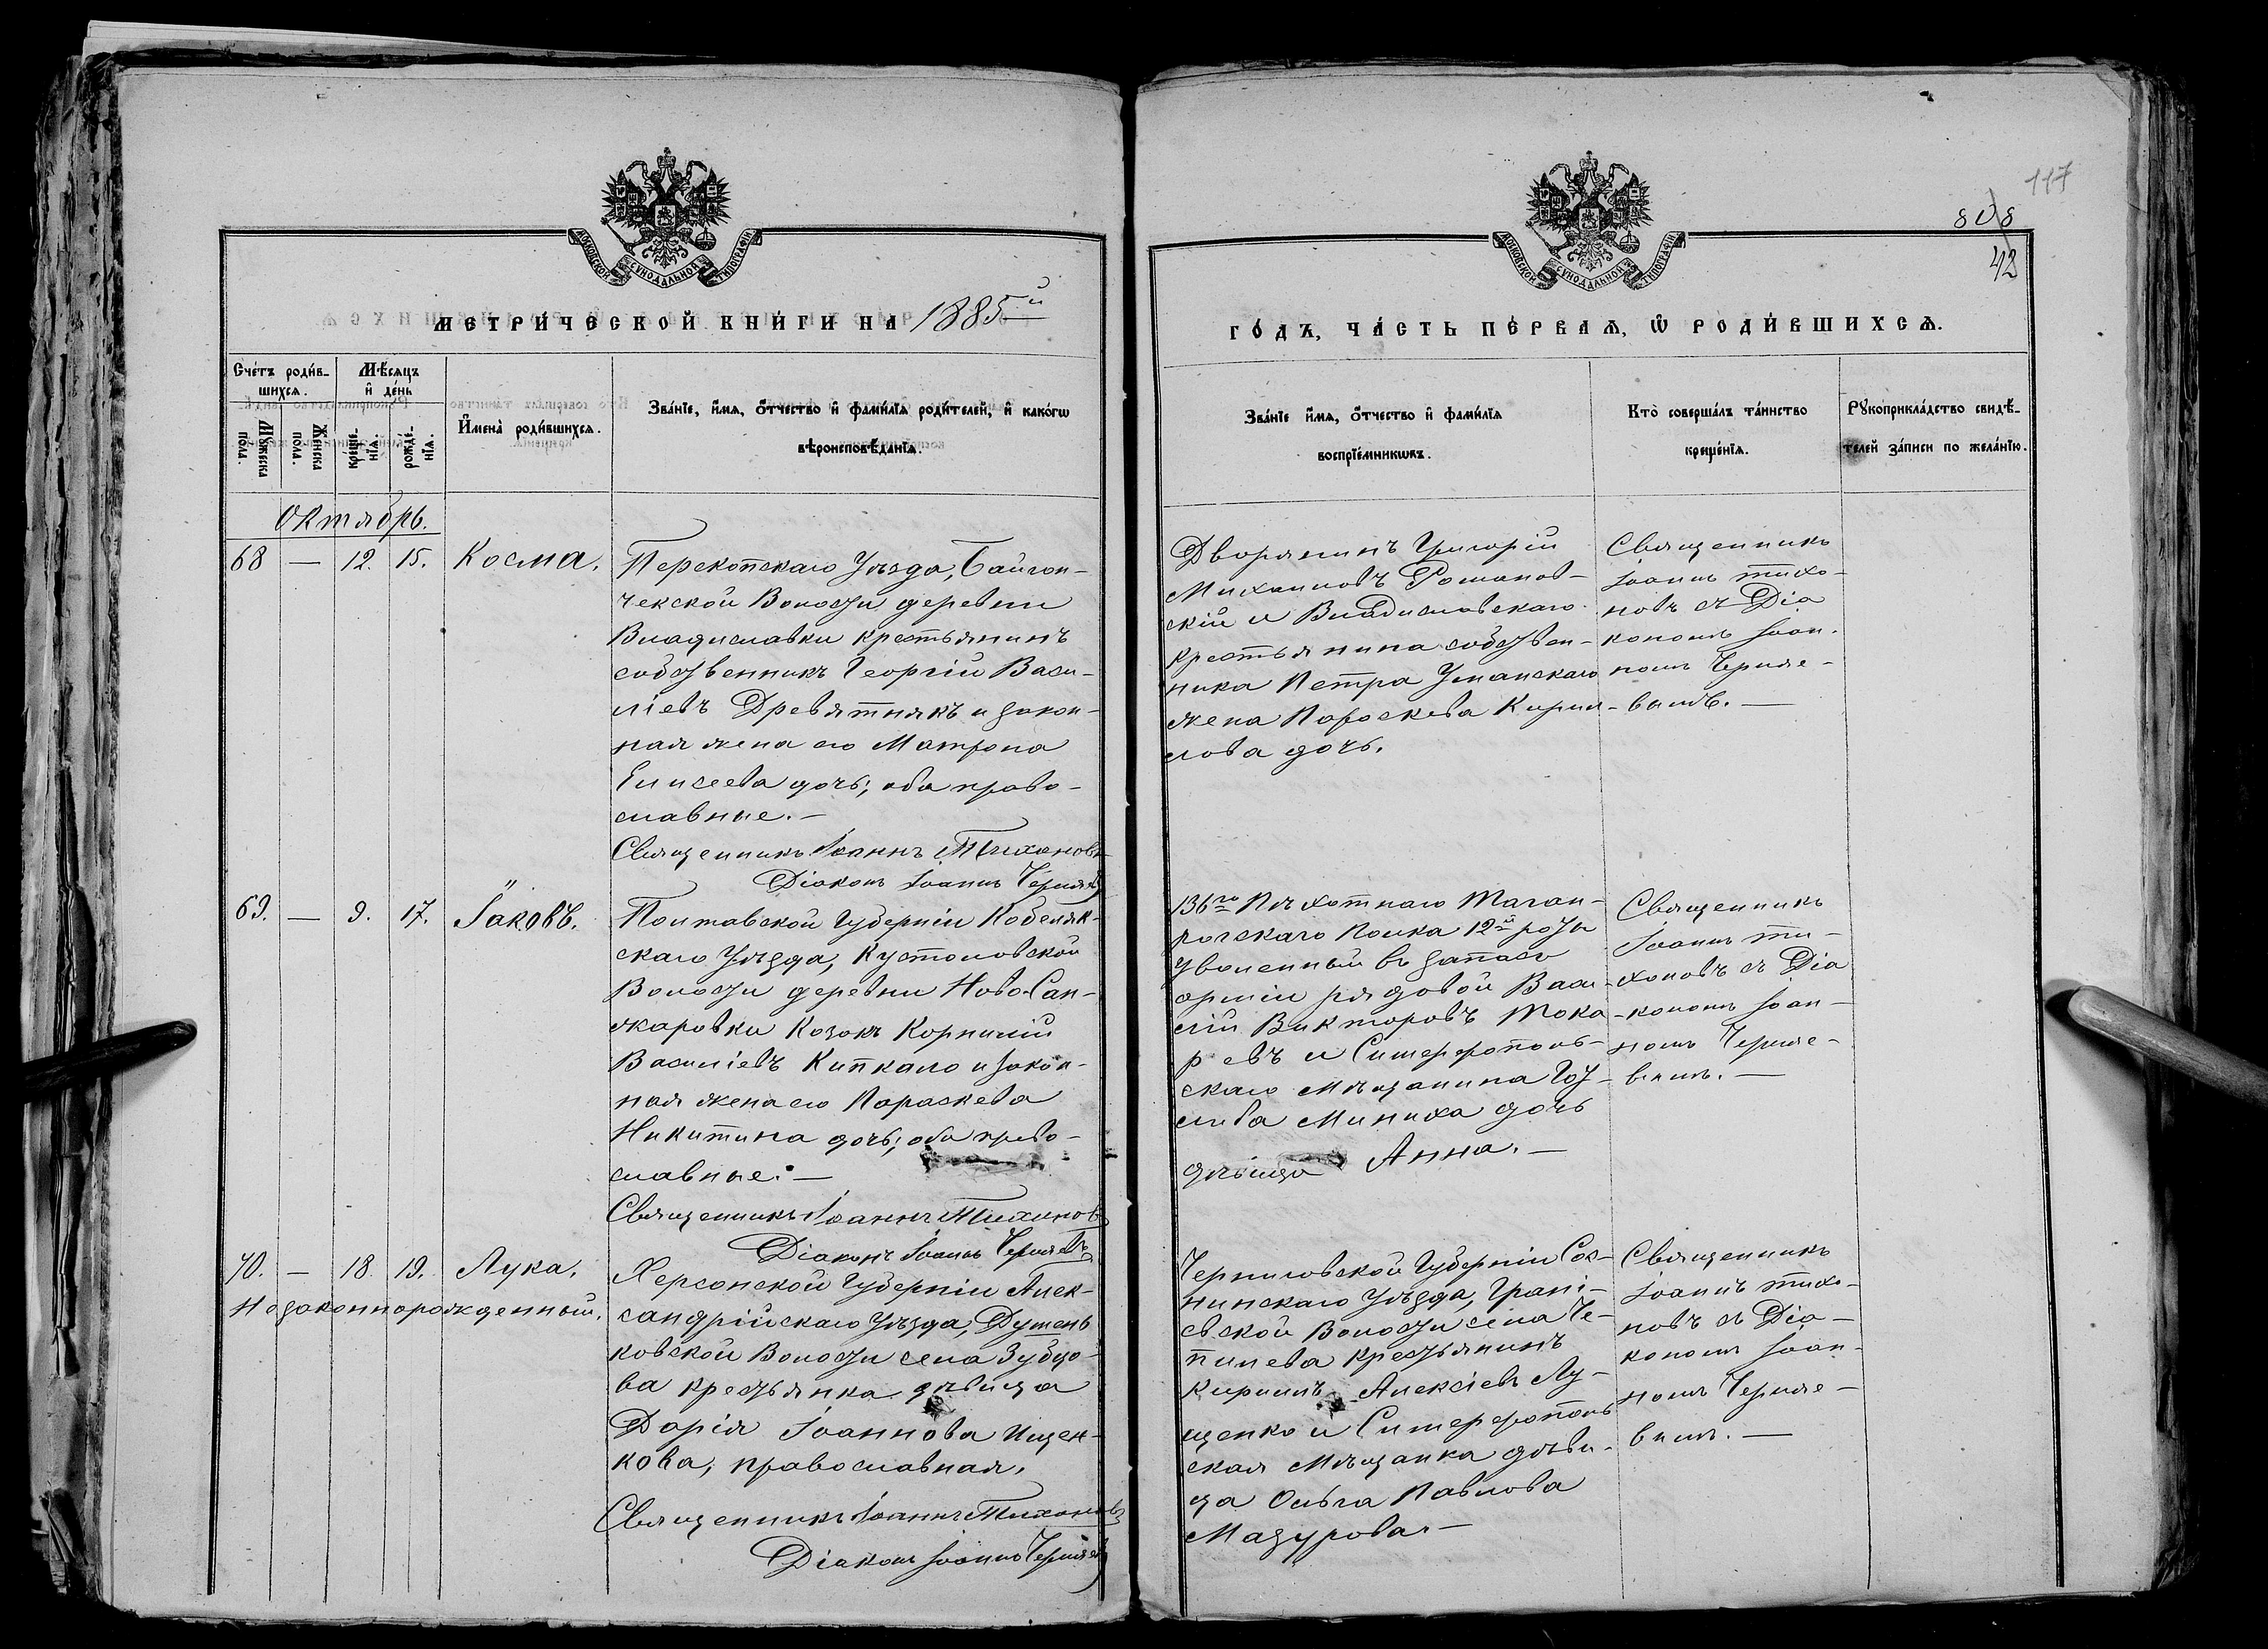 117
808
42
МОСКОВСКОЙ СѴНОДАЛЬНОЙ ТИПОГРАФІИ
МЕТРИ́ЧЕСКОЙ КНИ́ГИ НА 1885й
Сче́тъ роди́в-
шихсѧ.
Мꙋ́жеска
пола.
Же́нска
пола.
Мѣ́сѧцъ
и҆ де́нь
креще́-
нїѧ.
рожде́-
нїѧ.
И҆мена̀ роди́вшихсѧ.
Зва́нїе, и҆́мѧ, ѻ҆́тчество и҆ фами́лїѧ роди́телей, и҆ како́гѡ
вѣроисповѣ́данїѧ.
Октябрь.
68 — 12. 15. Косма.
Перекопскаго Уѣзда, Байгон-
чекской Волости деревни
Владиславки крестьянинъ
собственникъ Георгій Васи-
ліевъ Древятнякъ и закон-
ная жена его Матрона
Елисеева дочь; оба право-
славные. —
Священникъ Іоаннъ Тихоновъ
Діаконъ Іоаннъ Черняевъ
69. — 9. 17. Іаковъ.
Полтавской Губерніи Кобеляк-
скаго Уѣзда, Кустоловской
Волости деревни Ново-Сан-
жаровки Козакъ Корнилій
Василіевъ Кипкало и закон-
ная жена его Параскева
Никитина дочь; оба право-
славные. —
Священникъ Іоаннъ Тихоновъ
Діаконъ Іоаннъ Черняевъ
70. — 18. 19. Лука.
Незаконнорожденный.
Херсонской Губерніи Алек-
сандрійскаго Уѣзда, Дутень
ковской Волости села Зубцо-
ва крестьянка дѣвица
Дарія Іоаннова Ищен-
кова, православная.
Священникъ Іоаннъ Тихоновъ
Діаконъ Іоаннъ Черняевъ
МОСКОВСКОЙ СѴНОДАЛЬНОЙ ТИПОГРАФІИ
ГО́ДЪ, ЧА́СТЬ ПЕ́РВАѦ, Ѡ҆ РОДИ́ВШИХСѦ.
Зва́нїе и҆́мѧ, ѻ҆́тчество и҆ фами́лїѧ
воспрїе́мникѡвъ.
Кто̀ соверша́лъ та́инство
креще́нїѧ.
Рꙋкоприкла́дство свидѣ́-
телей за́писи по жела́нїю.
Дворянинъ Григорій
Михаиловъ Романов-
скій и Владиславскаго
крестьянина собствен-
ника Петра Уманскаго
жена Пароскева Кирил-
лова дочь.
Священникъ
Іоаннъ Тихо-
новъ съ Діа
кономъ Іоан-
номъ Черняе-
вымъ. —
136го Пѣхотнаго Таган-
рогскаго Полка 12й роты
уволенный въ запасъ
арміи рядовой Васи-
лій Викторовъ Тока-
ревъ и Симферополь-
скаго мѣщанина Гот-
либа Миниха дочь
дѣвица Анна. —
Священникъ
Іоаннъ Ти-
хоновъ съ Діа
кономъ Іоан-
номъ Черняе-
вымъ. —
Черниговской Губерніи Сос-
ницкаго Уѣзда,
евской Волости села Че-
пилева крестьянинъ
Кириллъ Алексіевъ Лу-
щенко и Симферополь
ская мѣщанка дѣви-
ца Ольга Павлова
Мазурова. —
Священникъ
Іоаннъ Тихо-
новъ съ Діа-
кономъ Іоан-
номъ Черняе-
вымъ. —